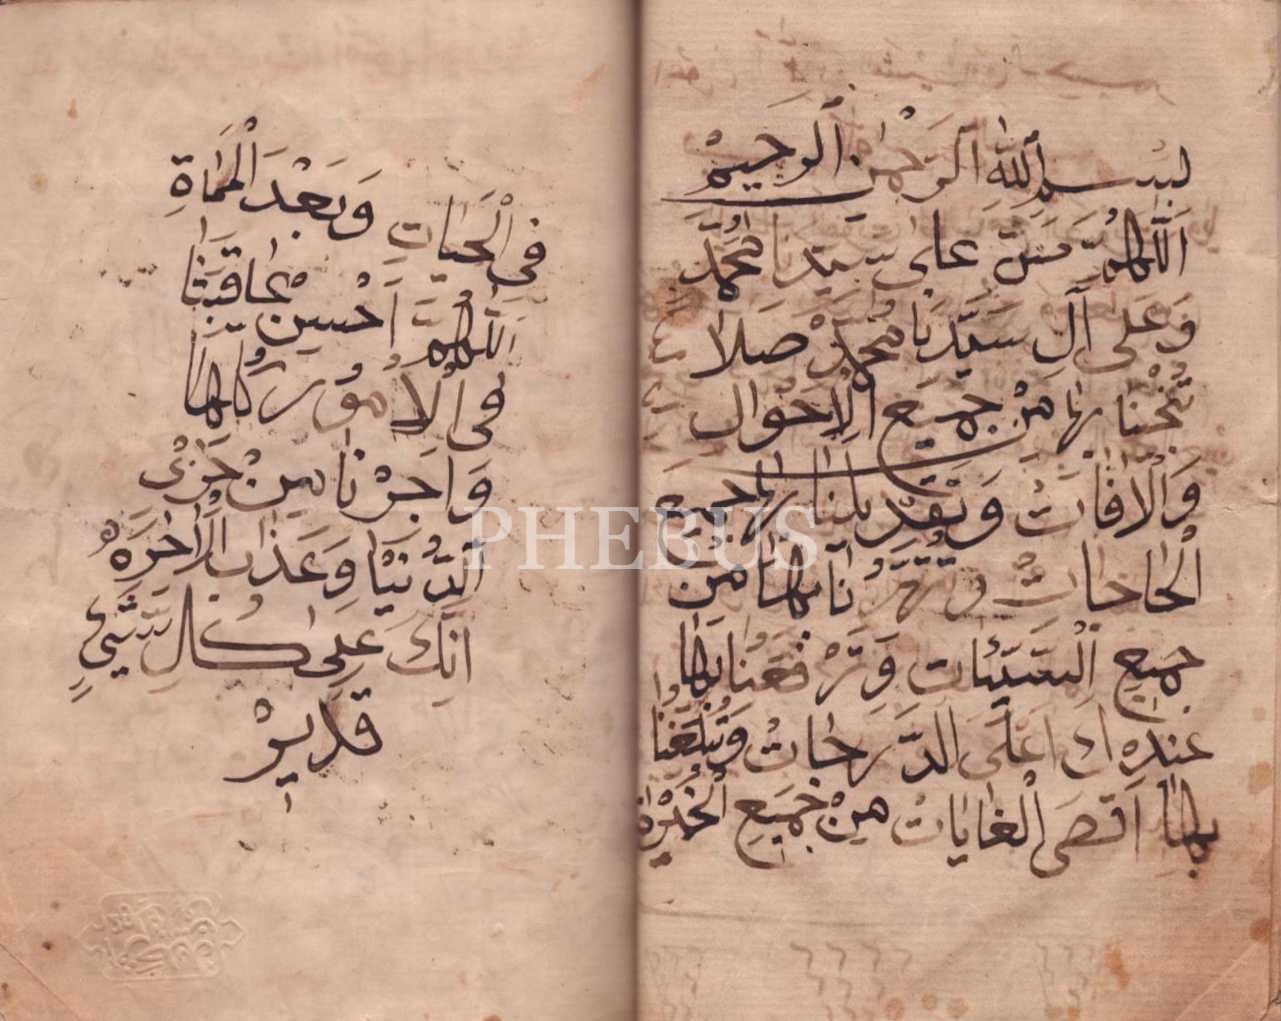 بسم الله الرحمن الرحيم
اللهم صل على سيدنا محمد
وعلى آل سيدنا محمد صلاة
تنجنا بها من جميع الاحوال
والافات وتقد يلنا بها جميع
الحاجات وتطهرنا بها من
جميع السيئات وترفعنا بها
عندك اعلى الدرجات وتبلغنا
بها اقصى الغايات من جميع الخيرات
في الحيات وبعد المماة
اللهم احسن عاقبتنا
في الامور كلها
واجرنا من خزي
الدنيا وعذاب الاخرة
انك على كل شيئ
قدير
PHEBUS